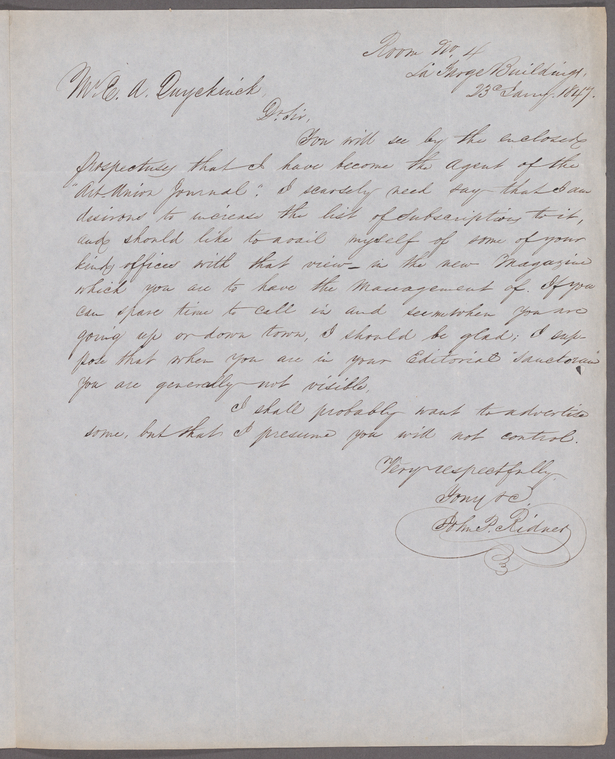 Room No. 4
La Farge Buildings,
23d Jany. 1847.
Mr. E. A. Duyckinck,
Dr. Sir,
You will see by the enclosed
prospectuses that I have become the Agent of the
"Art-Union Journal". I scarsely need say that I am
desirous to increase the list of Subscriptions to it,
and should like to avail myself of some of your
kind offices with that view - in the new Magazine
which you are to have the Management of. If you
can spare time to call in and see me when you are
going up or down town, I should be glad; I sup-
pose that when you are in your Editorial Sanctorum
You are generally not visible.
I shall probably want to advertise
some, but that I presume you will not control.
Very respectfully
Yours &c
John P. Ridner